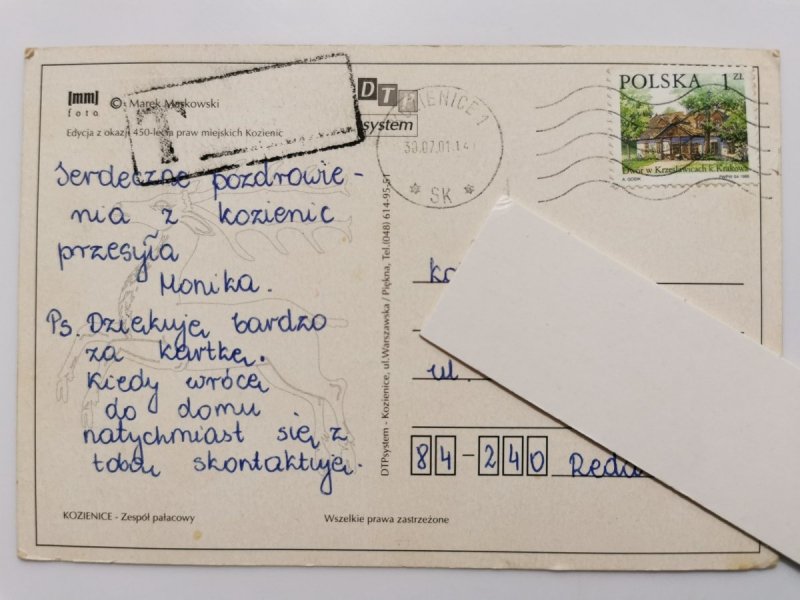 [mm]
foto
© Marek Markowski
Edycja z okazji 450-lecia praw miejskich Kozienic
T
DTP
system
KOZIENICE 1
30.07.01.14
* SK *
POLSKA 1 ZŁ
Dwór w Krzesławicach k. Krakowa
Serdeczne pozdrowie-
nia z kozienic
przesyła
Monika.
Ps. Dziękuję bardzo
za kartkę.
Kiedy wrócę
do domu
natychmiast się z
tobą skontaktuję.
DTPsystem - Kozienice, ul.Warszawska / Piękna, Tel.(048) 614-95-51
ul.
84-240
KOZIENICE - Zespół pałacowy
Wszelkie prawa zastrzeżone